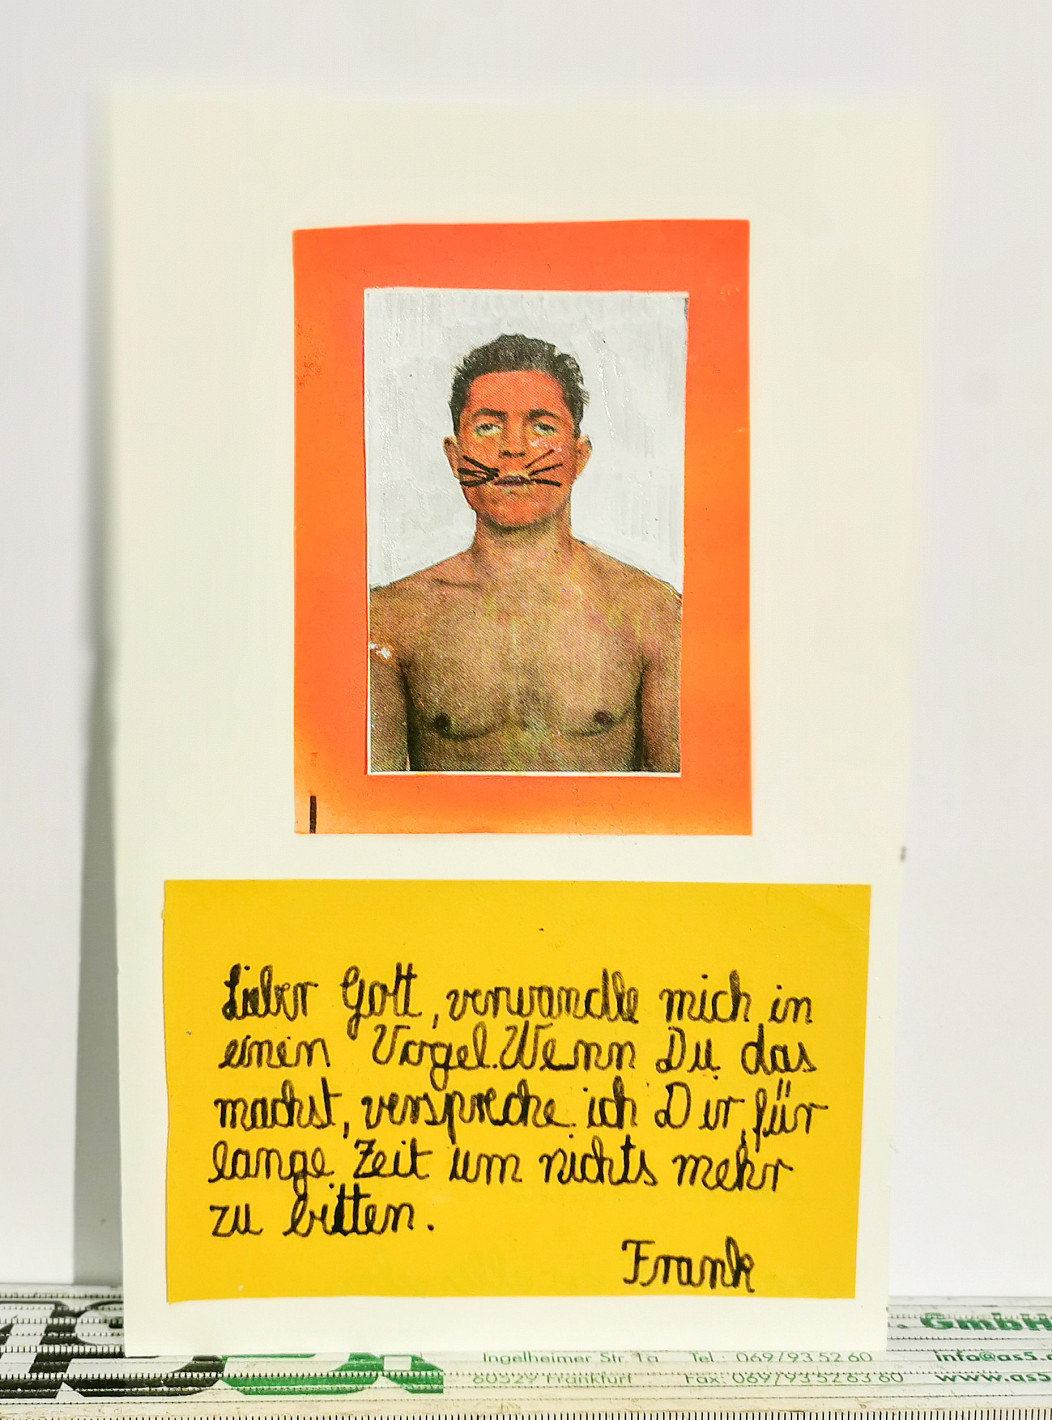 Lieber Gott, verwandle mich in
einen Vogel. Wenn Du das
machst, verspreche ich Dir, für
lange Zeit um nichts mehr
zu bitten.
Frank
GmbH
Ingelheimer Str. 1a Tel.: 069/93 52 60 info@as5.
60529 Frankfurt Fax: 069/93 52 63 60 www.as5